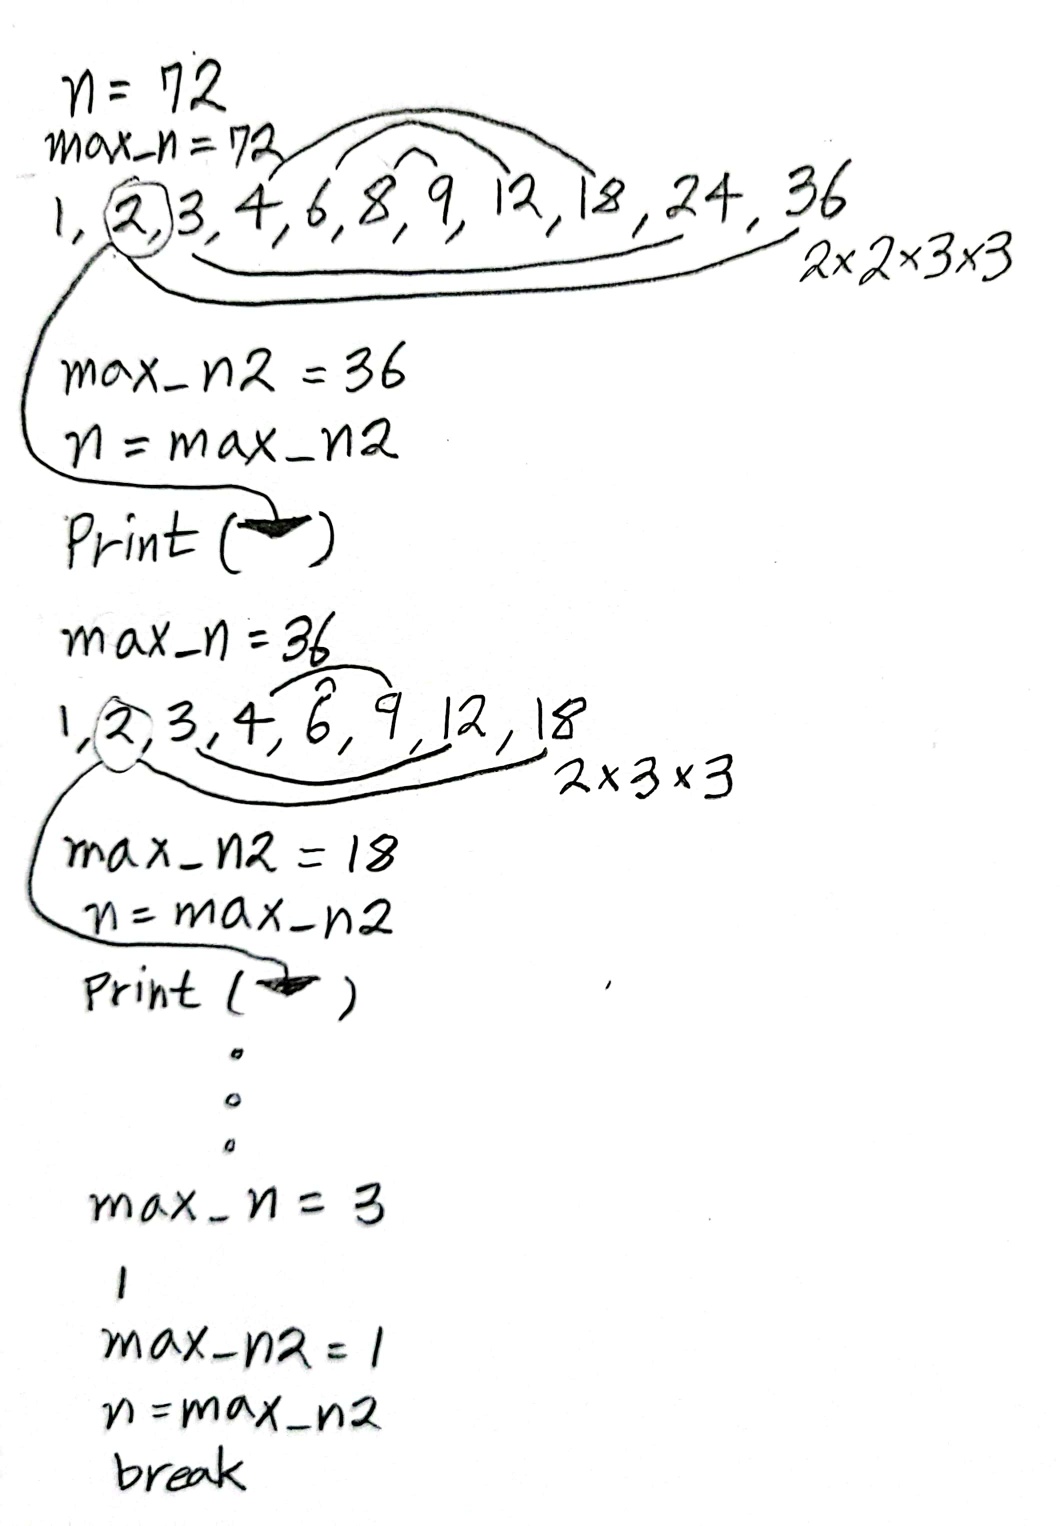 n = 72
max_n = 72
1, 2, 3, 4, 6, 8, 9, 12, 18, 24, 36
2×2×3×3
max_n2 = 36
n = max_n2
Print ( )
max_n = 36
1, 2, 3, 4, 6, 9, 12, 18
2×3×3
max_n2 = 18
n = max_n2
Print ( )
max_n = 3
1
max_n2 = 1
n = max_n2
break